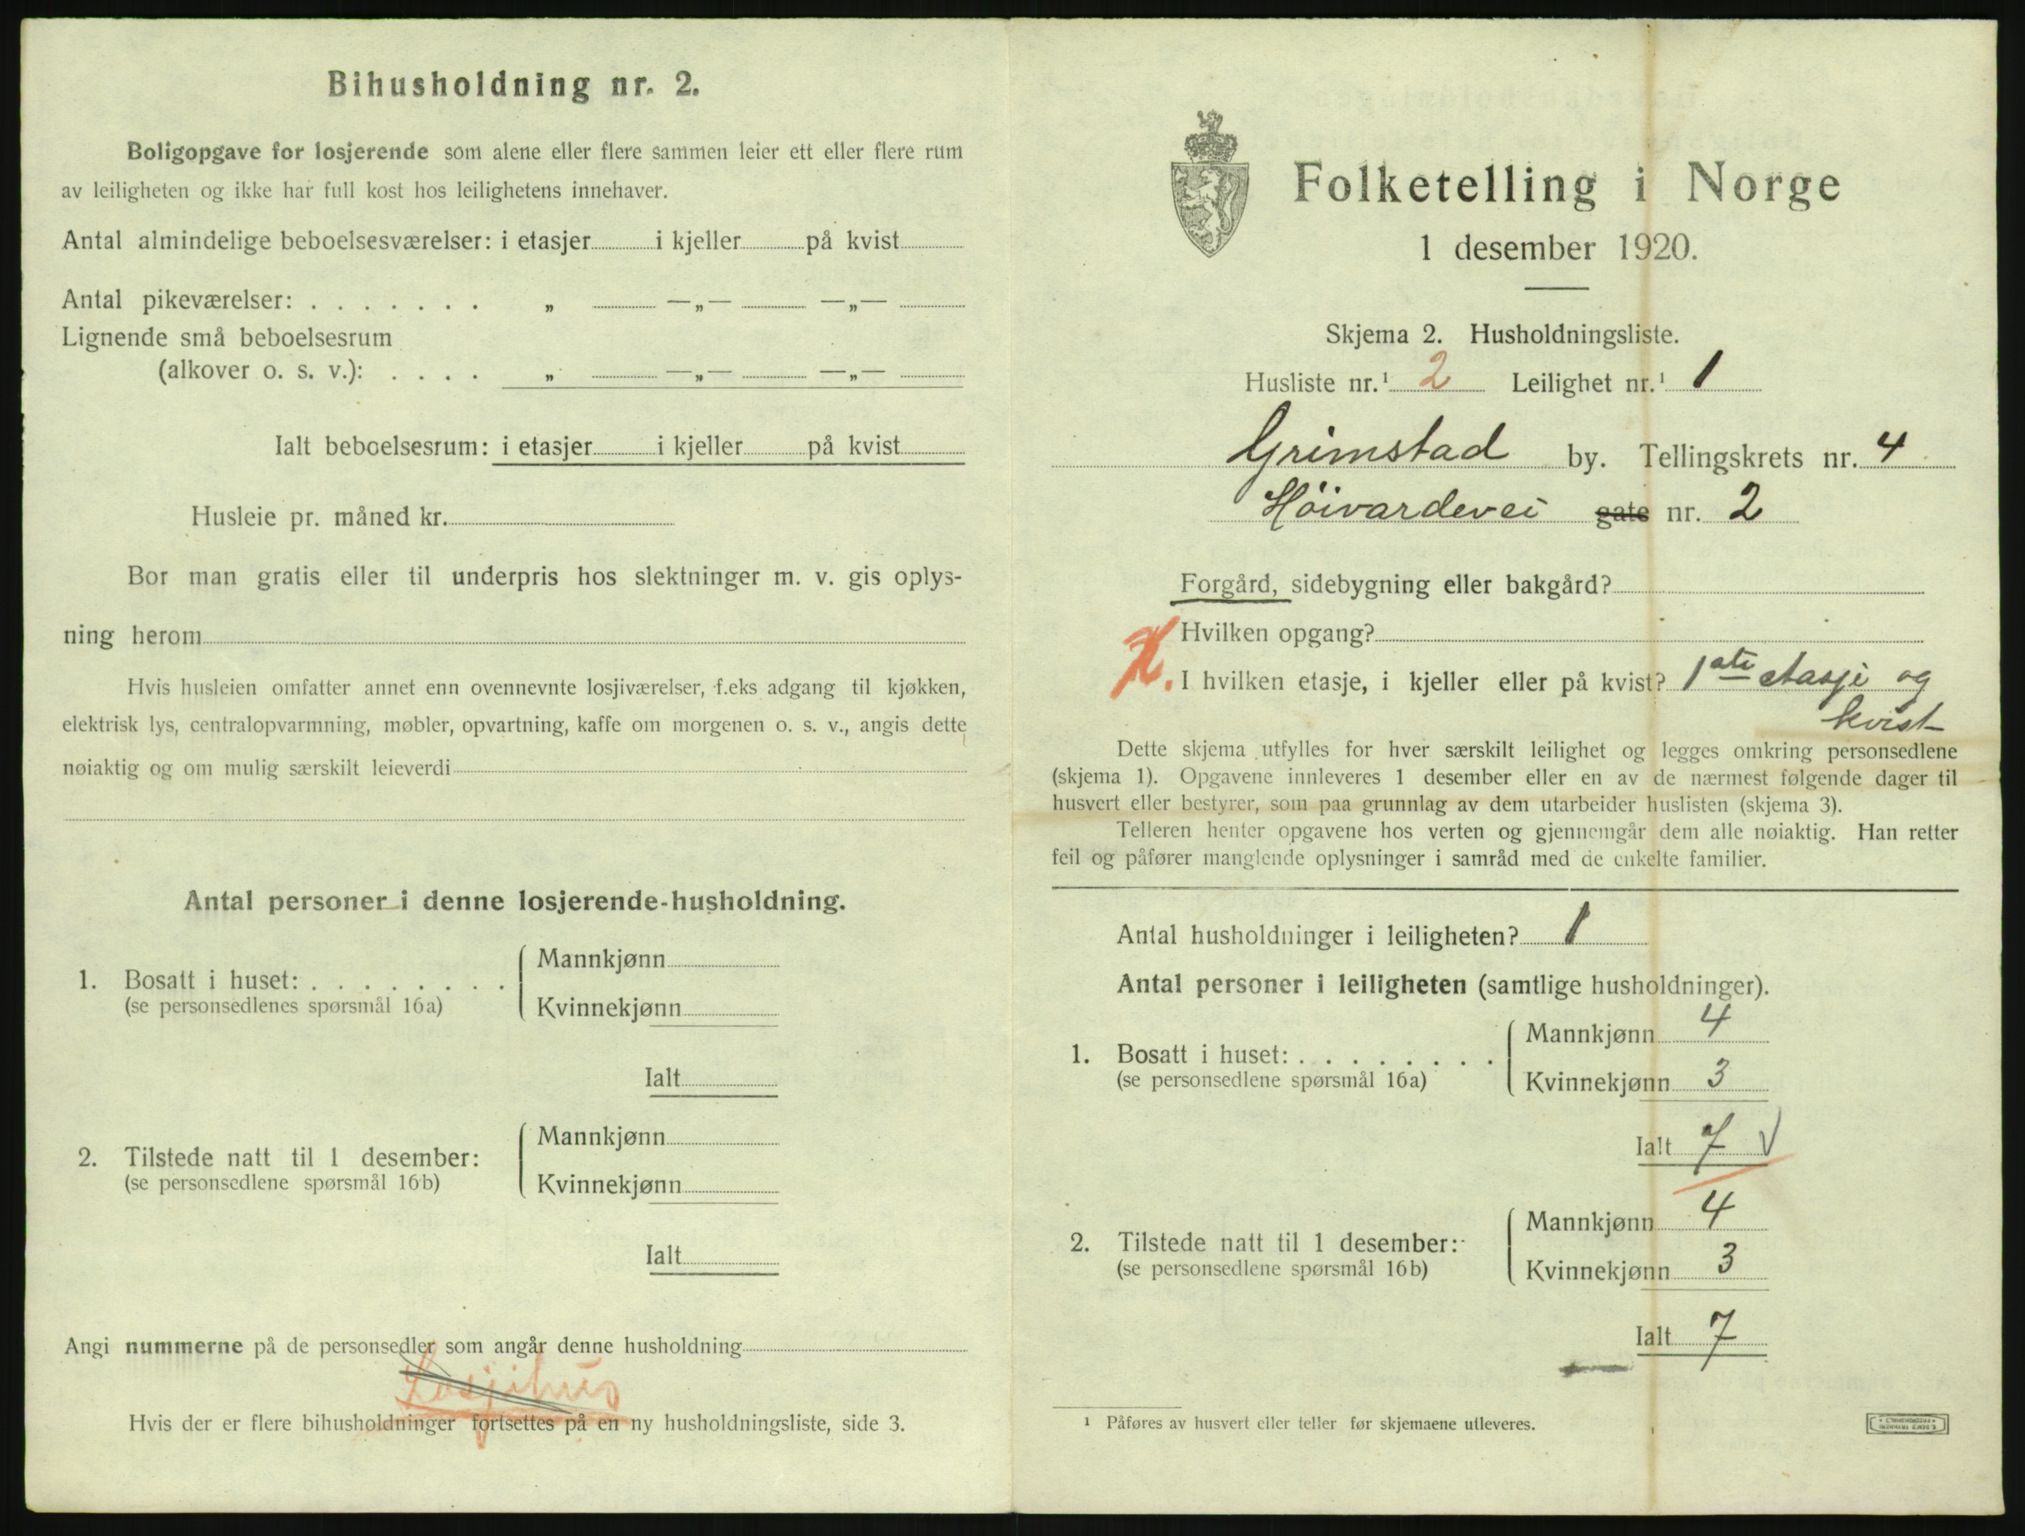 Bihusholdning nr. 2.
Boligopgave for losjerende som alene eller flere sammen leier ett eller flere rum
av leiligheten og ikke har full kost hos leilighetens innehaver.
Antal almindelige beboelsesværelser: i etasjer i kjeller på kvist
Antal pikeværelser: . . . . . . . „ —„— —„—
Lignende små beboelsesrum
(alkover o. s. v.): . . . . „ —„— —„—
Ialt beboelsesrum: i etasjer i kjeller på kvist
Husleie pr. måned kr.
Bor man gratis eller til underpris hos slektninger m. v. gis oplys-
ning herom
Hvis husleien omfatter annet enn ovennevnte losjiværelser, f.eks adgang til kjøkken,
elektrisk lys, centralopvarmning, møbler, opvartning, kaffe om morgenen o. s. v., angis dette
nøiaktig og om mulig særskilt leieverdi
Antal personer i denne losjerende-husholdning.
1. Bosatt i huset: . . . . . . . .
(se personsedlenes spørsmål 16a)
Mannkjønn
Kvinnekjønn
Ialt
2. Tilstede natt til 1 desember:
(se personsedlene spørsmål 16b)
Mannkjønn
Kvinnekjønn
Ialt
Angi nummerne på de personsedler som angår denne husholdning
Losjihus
Hvis der er flere bihusholdninger fortsettes på en ny husholdningsliste, side 3.
Folketelling i Norge
1 desember 1920.
Skjema 2. Husholdningsliste.
Husliste nr.¹ 2 Leilighet nr.¹ 1
Grimstad by. Tellingskrets nr. 4
Høivardevei gate nr. 2
Forgård, sidebygning eller bakgård?
Hvilken opgang?
I hvilken etasje, i kjeller eller på kvist? 1ste etasje og
kvist
Dette skjema utfylles for hver særskilt leilighet og legges omkring personsedlene
(skjema 1). Opgavene innleveres 1 desember eller en av de nærmest følgende dager til
husvert eller bestyrer, som paa grunnlag av dem utarbeider huslisten (skjema 3).
Telleren henter opgavene hos verten og gjennemgår dem alle nøiaktig. Han retter
feil og påfører manglende oplysninger i samråd med de enkelte familier.
Antal husholdninger i leiligheten? 1
Antal personer i leiligheten (samtlige husholdninger).
1. Bosatt i huset: . . . . . . . .
(se personsedlene spørsmål 16a)
Mannkjønn 4
Kvinnekjønn 3
Ialt 7 √
2. Tilstede natt til 1 desember:
(se personsedlene spørsmål 16b)
Mannkjønn 4
Kvinnekjønn 3
Ialt 7
¹ Påføres av husvert eller teller før skjemaene utleveres.